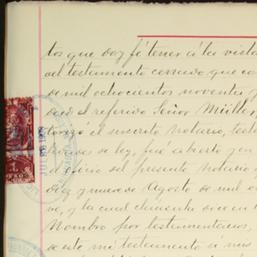 tos que doy fé tener á la vista
del testamento cerrado que
de mil ochocientos noventa y
el referido Señor Müller,
el suscrito Notario,
de ley, fué abierto y
el oficio del presente Notario
diez y nueve Agosto de mil
ve, y la cual cláusula dice
Nombro por testamentarios,
este mi testamento á mis